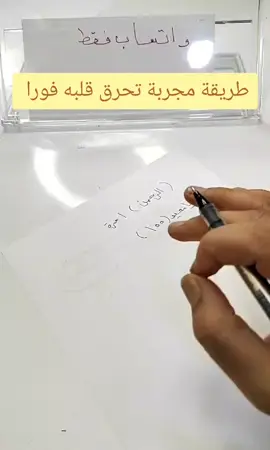 واتساب فقط
طريقة مجربة تحرق قلبه فورا
(الرحمن)
(١٠٠)